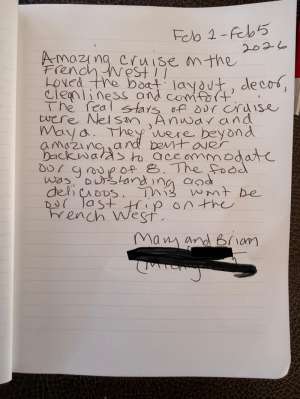 Feb 1 - Feb 5
2026
Amazing cruise on the
French West!!
Loved the boat layout, decor,
cleanliness and comfort.
The real stars of our cruise
were Nelson, Anwar and
Maya. They were beyond
amazing and bent over
backwards to accommodate
our group of 8. The food
was outstanding and
delicious. This won't be
our last trip on the
French West.
Mary and Brian